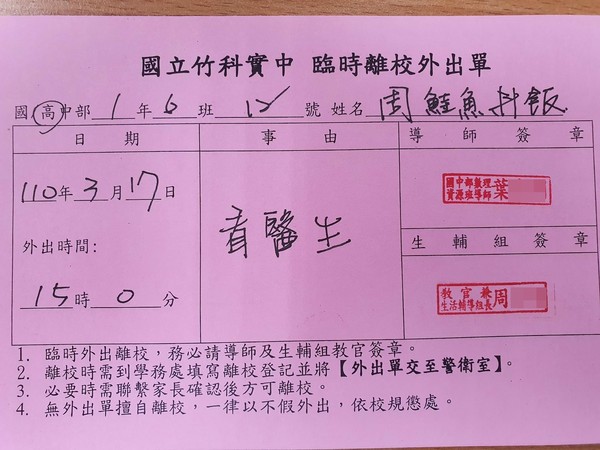 國立竹科實中 臨時離校外出單
國.高中部 1 年 6 班 12 號 姓名 周鮭魚抖飯
日期 事由 導師簽章
110年3月17日
外出時間:
15時0分
看醫生
國中部數理
資源班導師 葉
生輔組簽章
教官兼
生活輔導組長 周
1. 臨時外出離校,務必請導師及生輔組教官簽章。
2. 離校時需到學務處填寫離校登記並將【外出單交至警衛室】。
3. 必要時需聯繫家長確認後方可離校。
4. 無外出單擅自離校,一律以不假外出,依校規懲處。